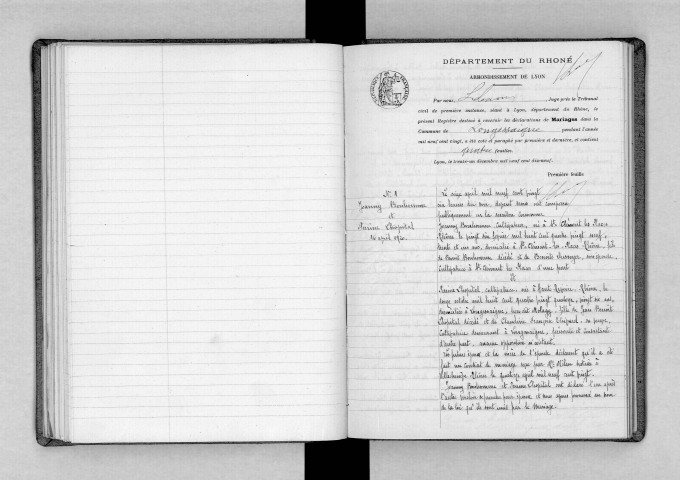 DÉPARTEMENT DU RHONE
ARRONDISSEMENT DE LYON
Par nous, Juge près le Tribunal
civil de première instance, séant à Lyon, département du Rhône, le
présent Registre destiné à recevoir les déclarations de Mariages dans la
Commune de Longessaigne pendant l'année
mil neuf cent vingt, a été coté et paraphé par première et dernière, et contient
quatre feuilles.
Lyon, le trente-un décembre mil neuf cent dix-neuf.
Première feuille
N° 1
Joanny Bonhomme
et
Chopital
16 avril 1920
Le seize avril mil neuf cent vingt
heures du soir, devant nous ont comparu
publiquement en la maison commune
Joanny Bonhomme cultivateur, né à St Clément les Places
Rhône, le vingt six mil huit cent quatre vingt neuf,
trente et un ans, domicilié à St Clément-les-Places Rhône, fils
de Bonhomme décédé et de Benoite son épouse,
cultivatrice à St Clément les Places d'une part
Et
Chopital, cultivatrice, née à Haute Rivoire, Rhône, le
mil huit cent quatre vingt quatorze, vingt six ans,
domiciliée à Longessaigne, fille de Jean Benoit
Chopital décédé et de Claudine Françoise sa veuve,
cultivatrice demeurant à Longessaigne, présente et consentant
d'autre part, aucune opposition n'existant.
Les futurs époux et la mère de l'épouse déclarent qu'il a été
fait un contrat de mariage reçu par Me notaire à
Rhône le quatorze avril mil neuf cent vingt.
Joanny Bonhomme et Chopital ont déclaré l'un après
l'autre vouloir se prendre pour époux et nous avons prononcé au nom
de la loi qu'ils sont unis par le mariage.